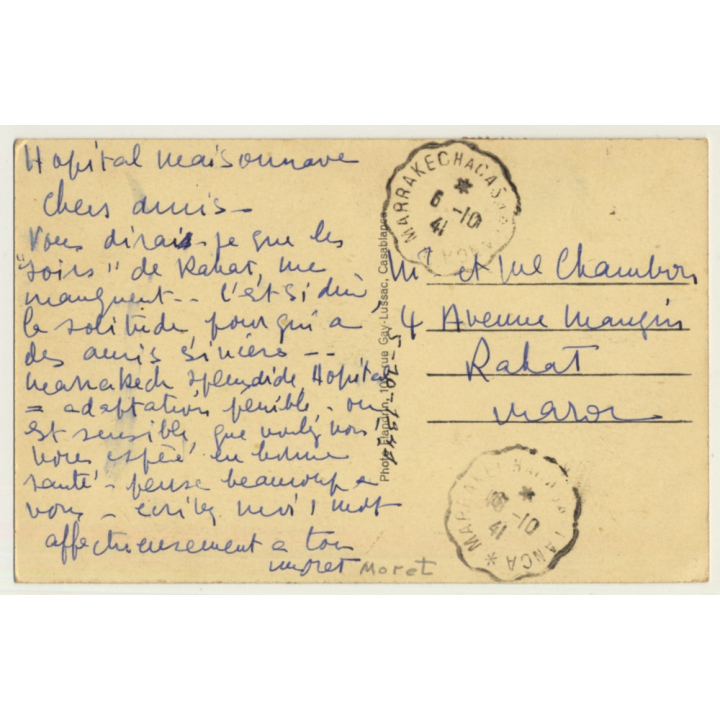 Hopital Maisonnave
Chers amis -
Vous dirais-je que les
"soirs" de Rabat, me
manquent -- C'est si dur,
la solitude pour qui a
des amis sincères --
Marrakech splendide, Hopital
= adaptation pénible. on
est sensible, que voulez vous
vous espère en bonne
santé - pense beaucoup a
vous - écrivez moi 1 mot
affectueusement a tous
Moret
Moret
MARRAKECH A CASABLANCA
6 -10
41
Photo Flandrin, 10, rue Gay-Lussac, Casablanca
5-10-1941
M et Me Chambon
4 Avenue Mangin
Rabat
Maroc
MARRAKECH A CASABLANCA
-10
41